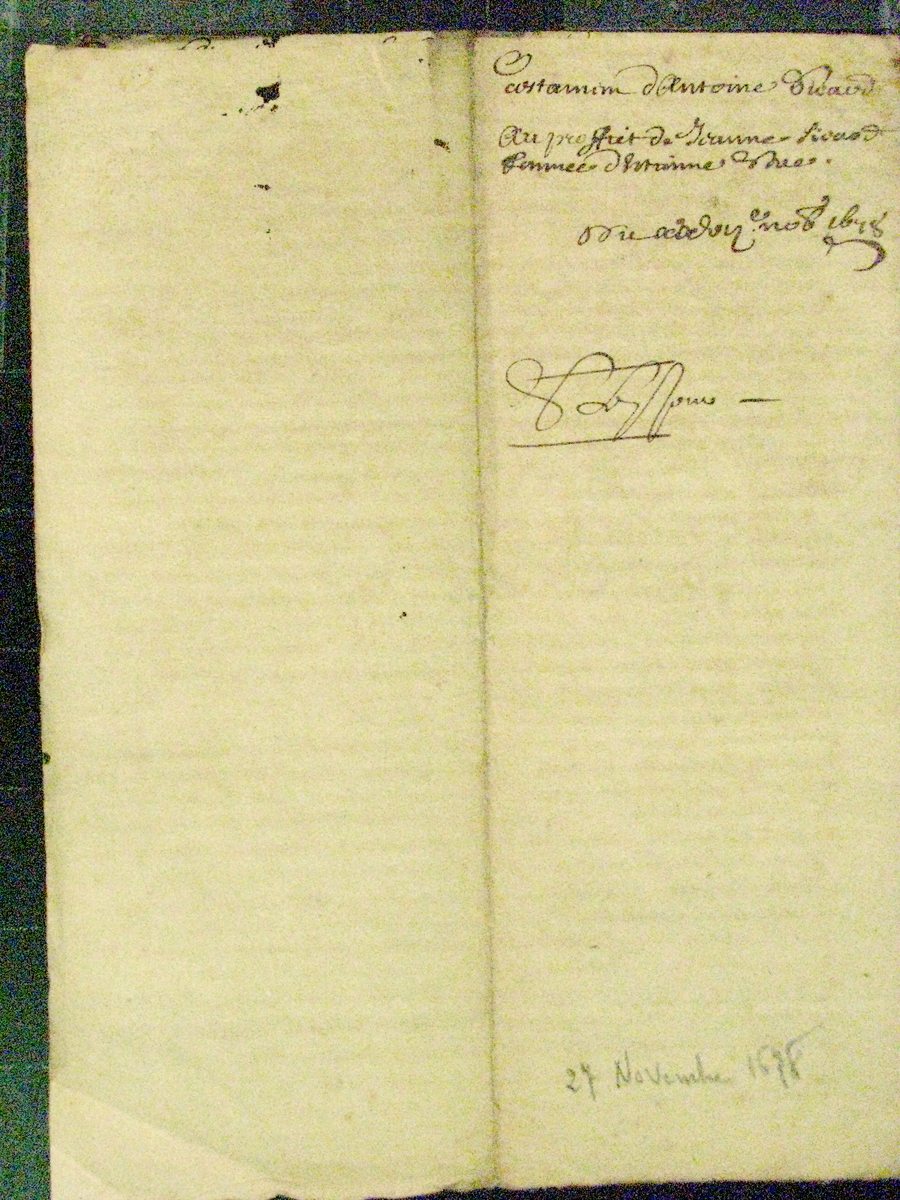 Testamim d'Antoine Sicard
Au proffiet de Jeanne Sicard
femmee d'Estienne
Du xxvij.e no.bre 1678
27 Novembre 1678